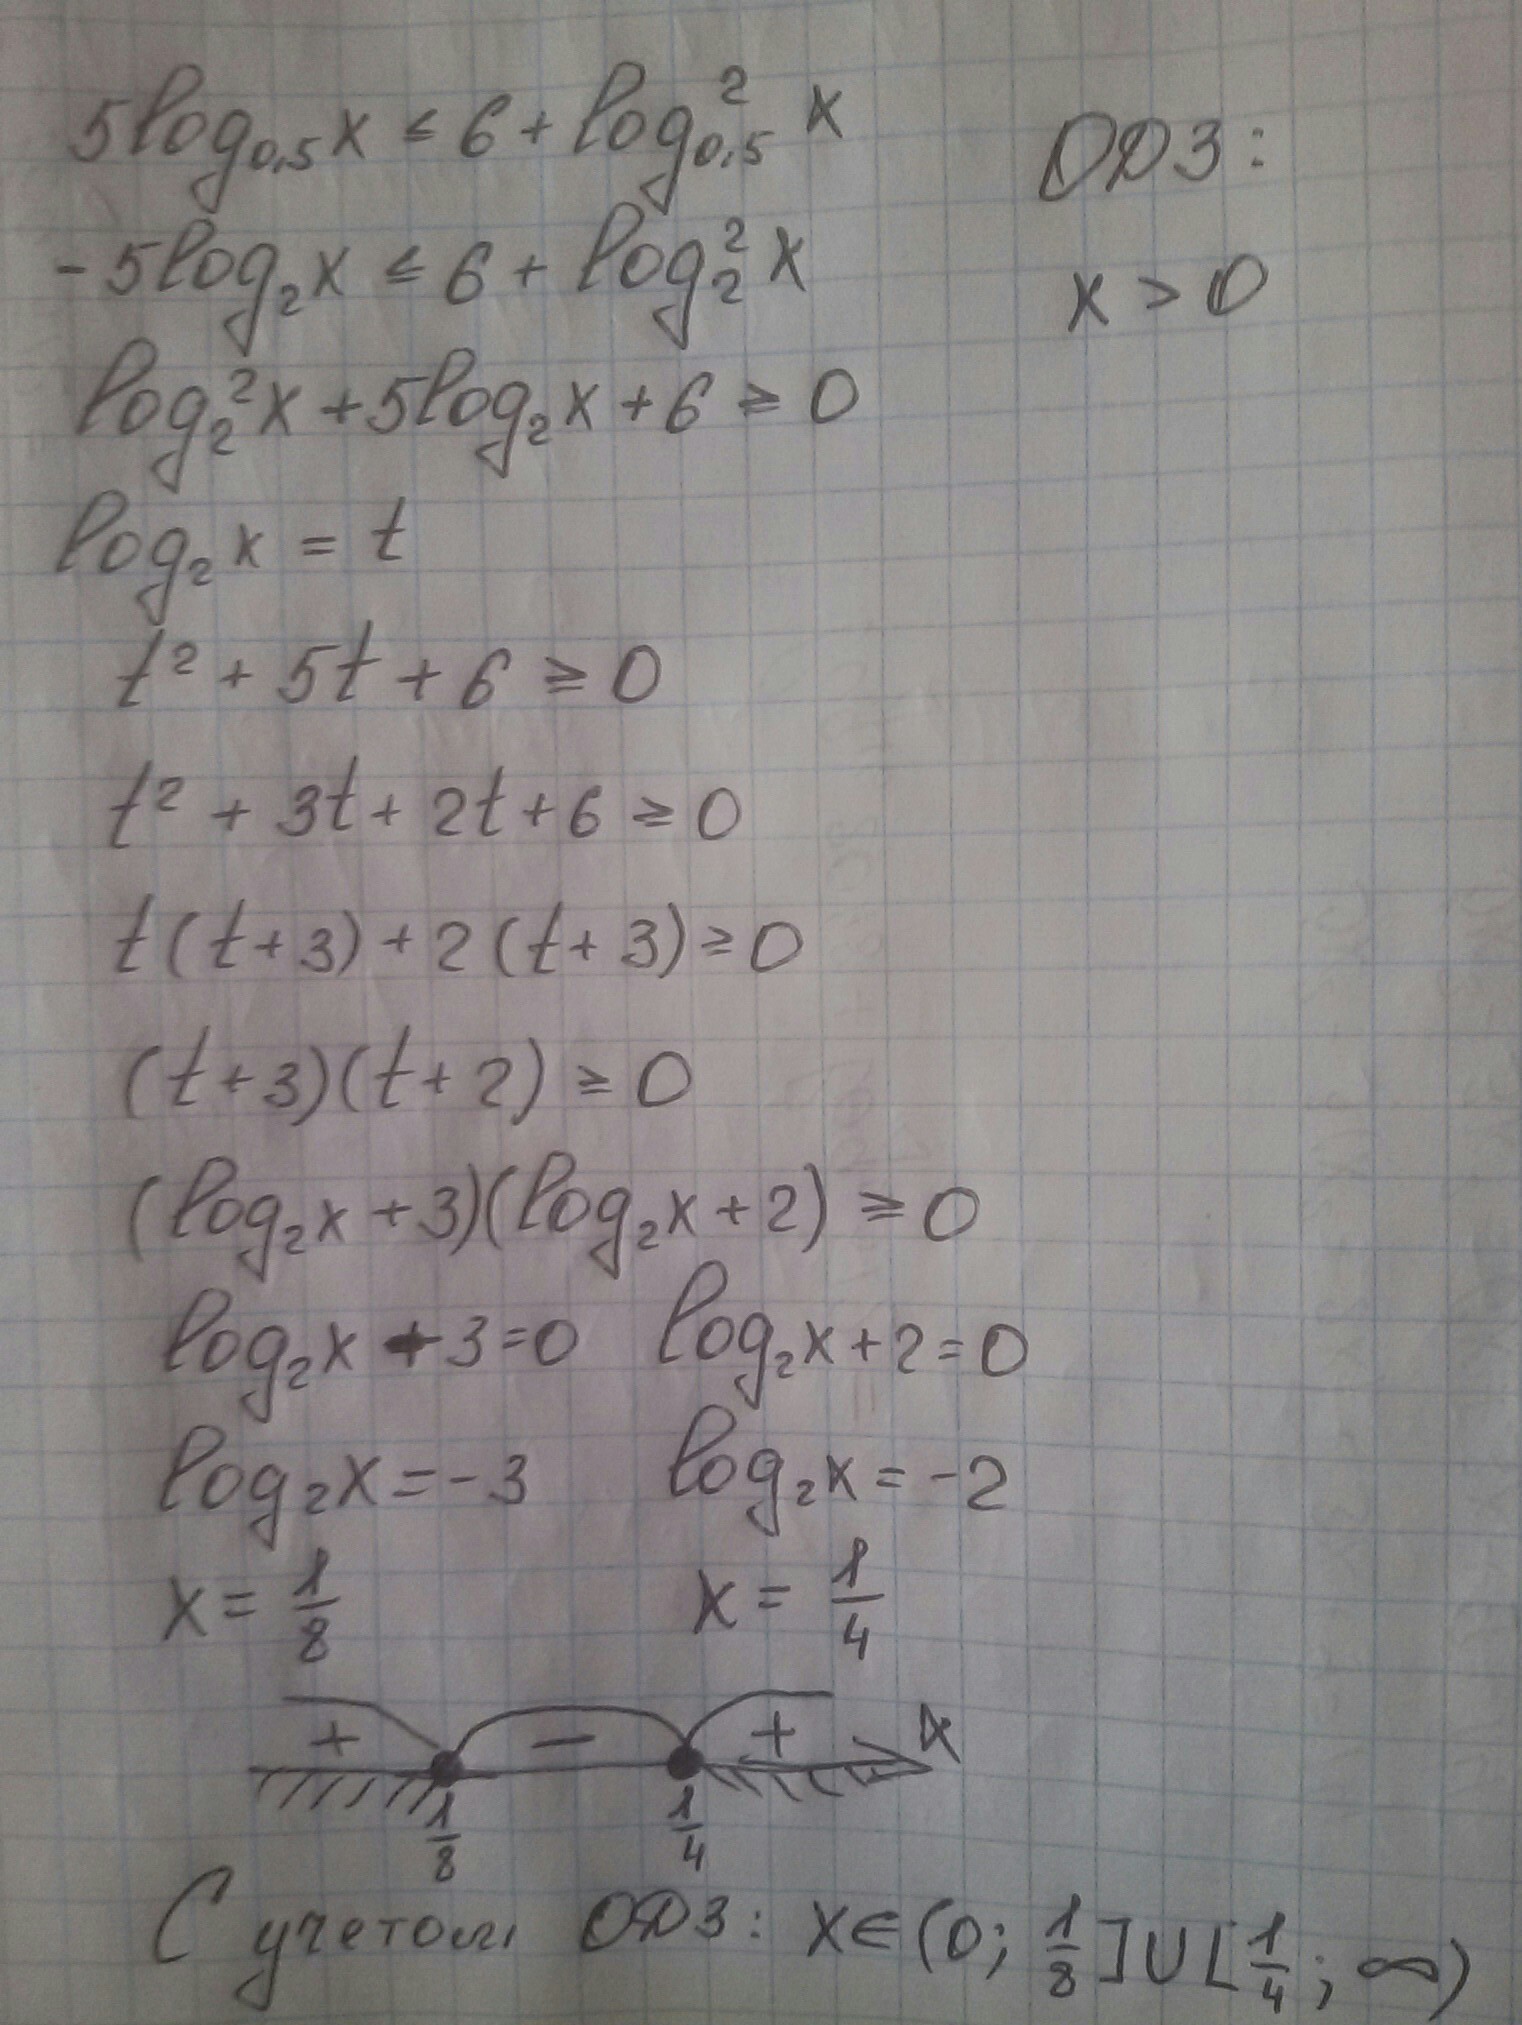 5log₀,₅x ≤ 6 + log²₀,₅ x
ОДЗ:
-5log₂x ≤ 6 + log₂²x
x > 0
log₂²x + 5log₂x + 6 ≥ 0
log₂x = t
t² + 5t + 6 ≥ 0
t² + 3t + 2t + 6 ≥ 0
t(t+3) + 2(t+3) ≥ 0
(t+3)(t+2) ≥ 0
(log₂x + 3)(log₂x + 2) ≥ 0
log₂x + 3 = 0 log₂x + 2 = 0
log₂x = -3 log₂x = -2
x = 1/8 x = 1/4
+ − + x
1/8 1/4
С учетом ОДЗ: x ∈ (0; 1/8] ∪ [1/4; ∞)